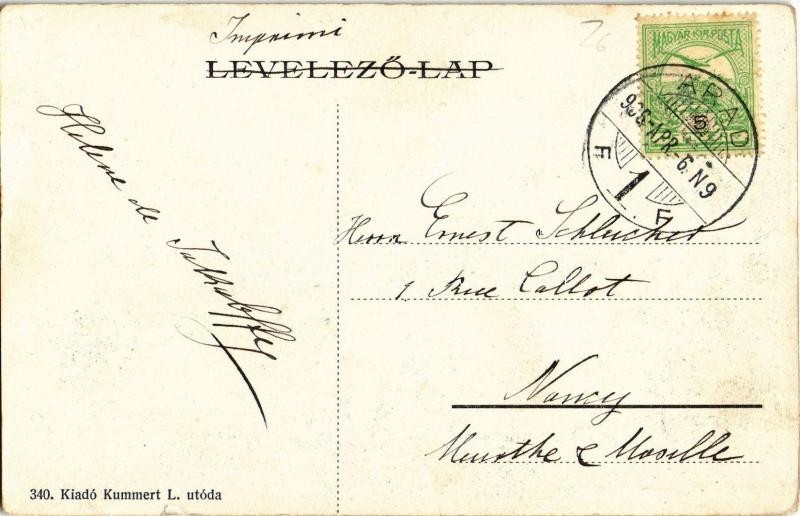 Imprimé
LEVELEZŐ-LAP
MAGYAR KIR. POSTA
5
ARAD
906 APR. 6. N9
F 1 F
Helene de
Herrn Ernest Schleicher
1 Rue Callot
Nancy
Meurthe & Moselle
340. Kiadó Kummert L. utóda